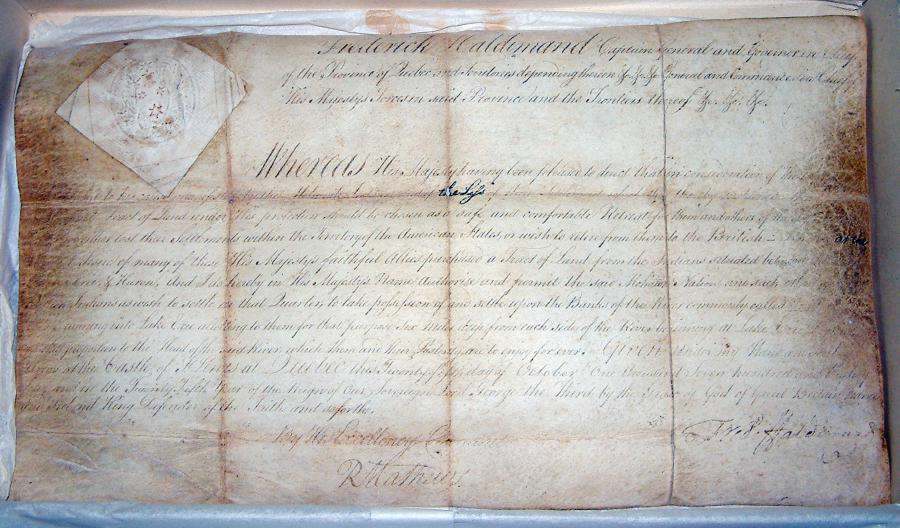 Frederick Haldimand Captain General and Governor in Chief
of the Province of Quebec and Territories depending thereon &c &c &c General and Commander in Chief
His Majesty's Forces in said Province and the Frontiers thereof &c. &c. &c.
Whereas His Majesty having been pleased to direct that in consideration of the
the Loss of their Settlement
Tract of Land under His protection should be chosen as a safe and comfortable Retreat for them and others of the
lost their Settlements within the Territory of the American States, or wish to retire from them to the British
desire of many of these His Majesty's faithful Allies purchased a Tract of Land from the Indians situated between
Huron, And I do hereby in His Majesty's Name Authorise and permit the said Mohawk Nation and such
Indians as wish to settle in that Quarter to take possession of and settle upon the Banks of the River commonly called
running into Lake Erie allotting to them for that purpose Six Miles deep from each side of the River beginning at Lake Erie
proportion to the Head of the said River which them and their Posterity are to enjoy for ever. Given under my Hand and Seal
Arms at the Castle of St Lewis at Quebec this Twenty fifth day of October One thousand Seven hundred and
and in the Twenty fifth Year of the Reign of Our Sovereign Lord George the Third by the Grace of God of Great Britain France
and Ireland King Defender of the Faith and so forth.
Fred: Haldimand
By His Excellency's Command
R Mathews